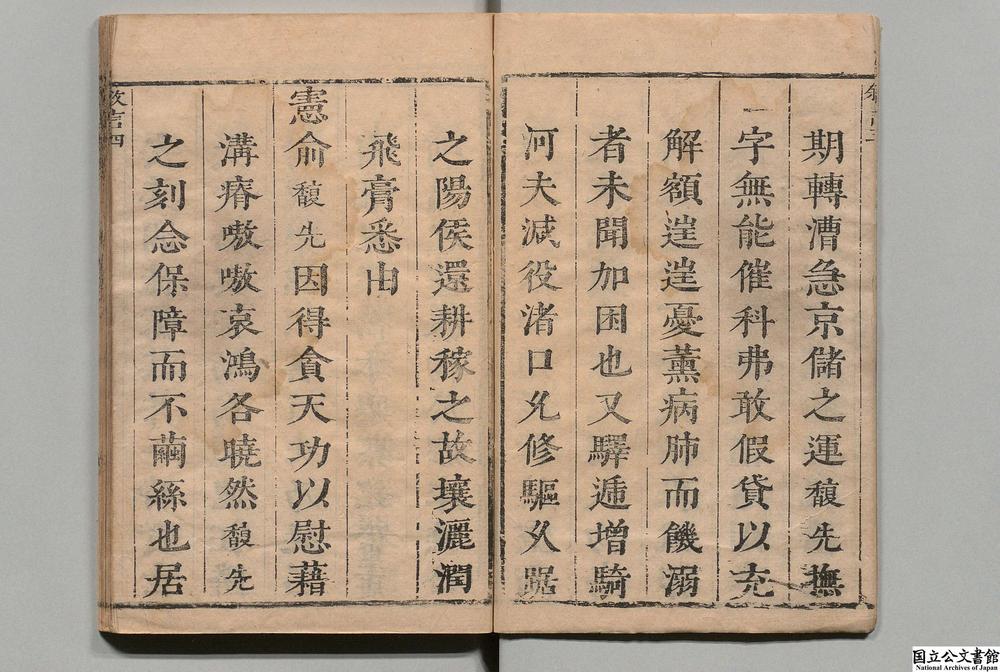 期轉漕急京儲之運馥先撫
一字無能催科弗敢假貸以充
解額遑遑憂薰病肺而饑溺
者未聞加困也又驛遞增騎
河夫减役渚口允修驅久踞
之陽侯還耕稼之故壤灑潤
飛膏悉由
憲俞馥先因得貪天功以慰藉
溝瘠嗷嗷哀鴻各曉然馥先
之刻念保障而不繭絲也居
敘言四
国立公文書館
National Archives of Japan